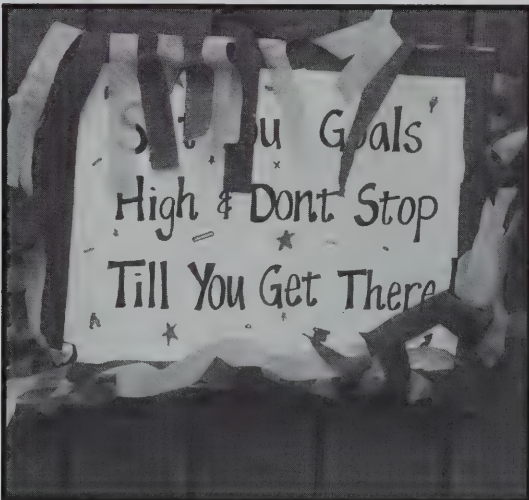 Goals
High & Dont Stop
Till You Get There!